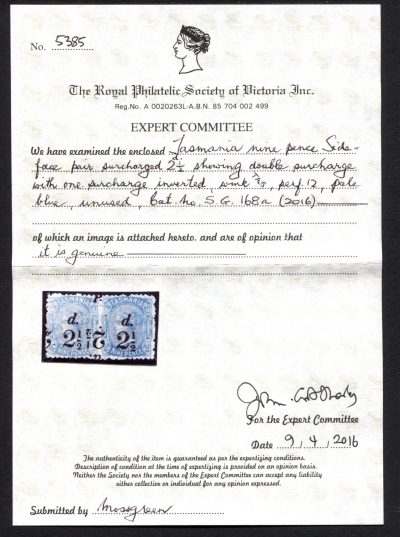 No. 5385
The Royal Philatelic Society of Victoria Inc.
Reg.No. A 0020263L-A.B.N. 85 704 002 499
EXPERT COMMITTEE
We have examined the enclosed Tasmania nine pence Side-
face pair surcharged 2½d showing double surcharge
with one surcharge inverted, wmk perf. 12, pale
blue, unused, Cat. no. S.G. 168a (2016)
of which an image is attached hereto, and are of opinion that
it is genuine
TASMANIA TASMANIA
d. d.
2½ 2½
NINE PENCE NINE PENCE
John
For the Expert Committee
Date 9, 4, 2016
The authenticity of the item is guaranteed as per the expertizing conditions.
Description of condition at the time of expertizing is provided on an opinion basis.
Neither the Society nor the members of the Expert Committee can accept any liability
either collective or individual for any opinion expressed.
Submitted by Mossgreen